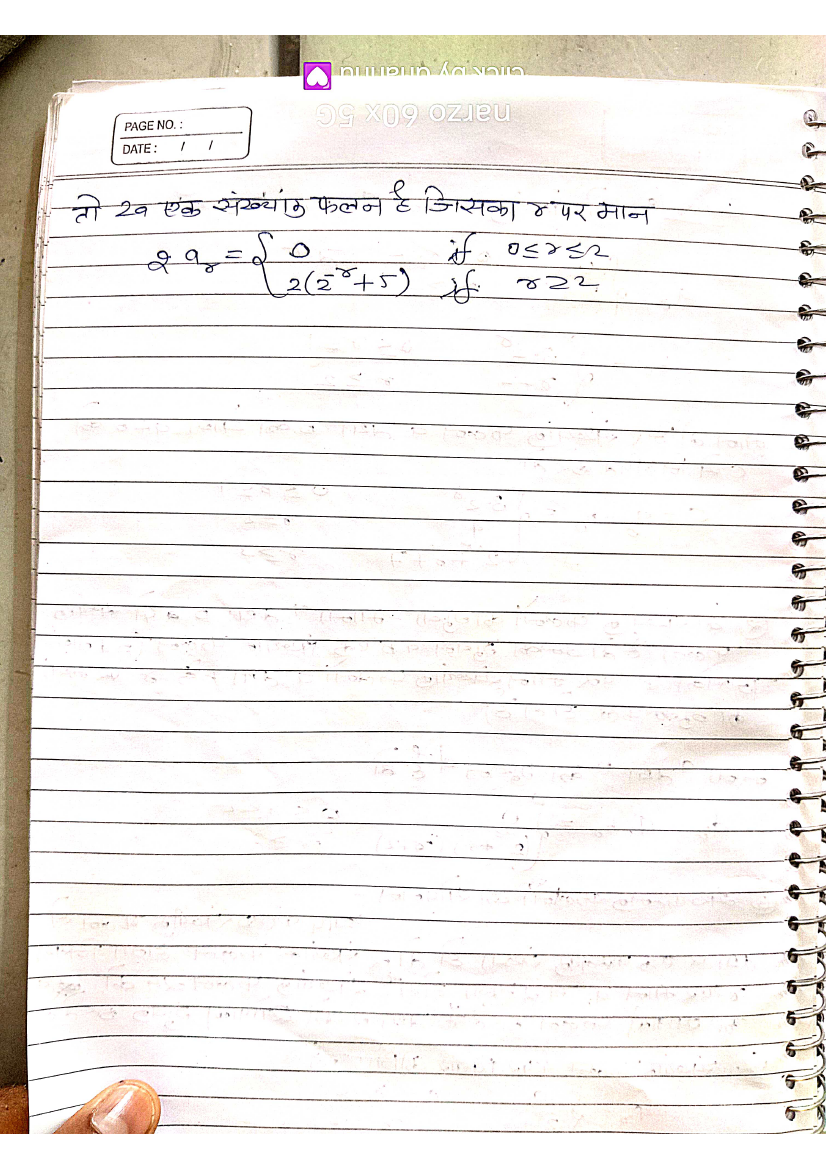 click by gnannu
narzo 60x 5G
PAGE NO. :
DATE : / /
तो 2a एक संख्यांक फलन है जिसका r पर मान
2 a_r = { 0 if 0≤r≤2
2(2^-r+5) if r≥2